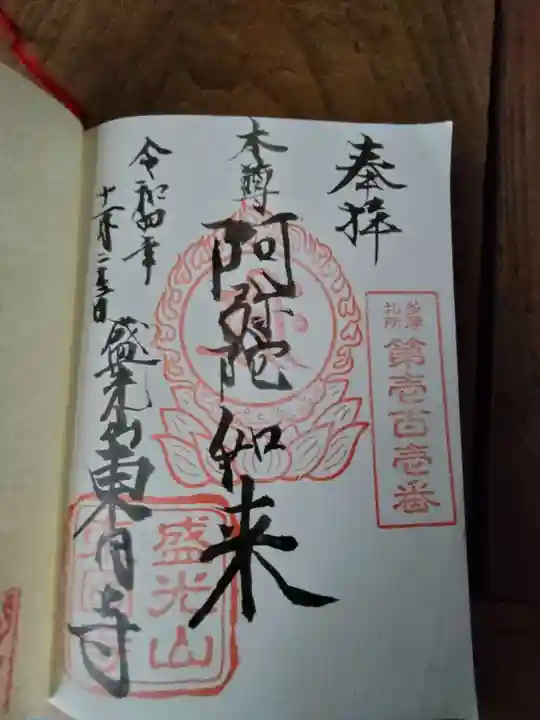 奉拝
多摩
札所
第壱百壱番
本尊
阿弥陀如来
令和四年
十一月二十三日
盛光山東円寺
盛光山